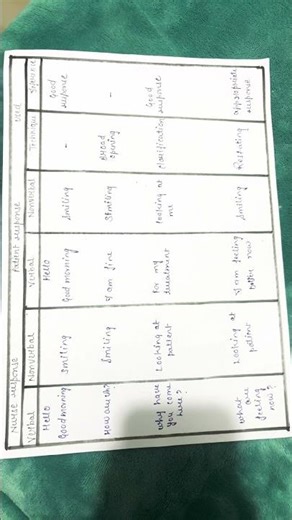 Nurse response Patient response Used
Verbal Nonverbal Verbal Nonverbal Technique
Hello
Good morning
Smiling
Hello
Good morning
Smiling
-
Good
response
Smiling
I am fine
Smiling
Broad
opening
-
Why have
you come
here?
Looking at
patient
For my
treatment
Looking at
me
Good
response
What are
feeling
now?
Looking at
patient
I am feeling
better now
Smiling
Restating
appropriate
response